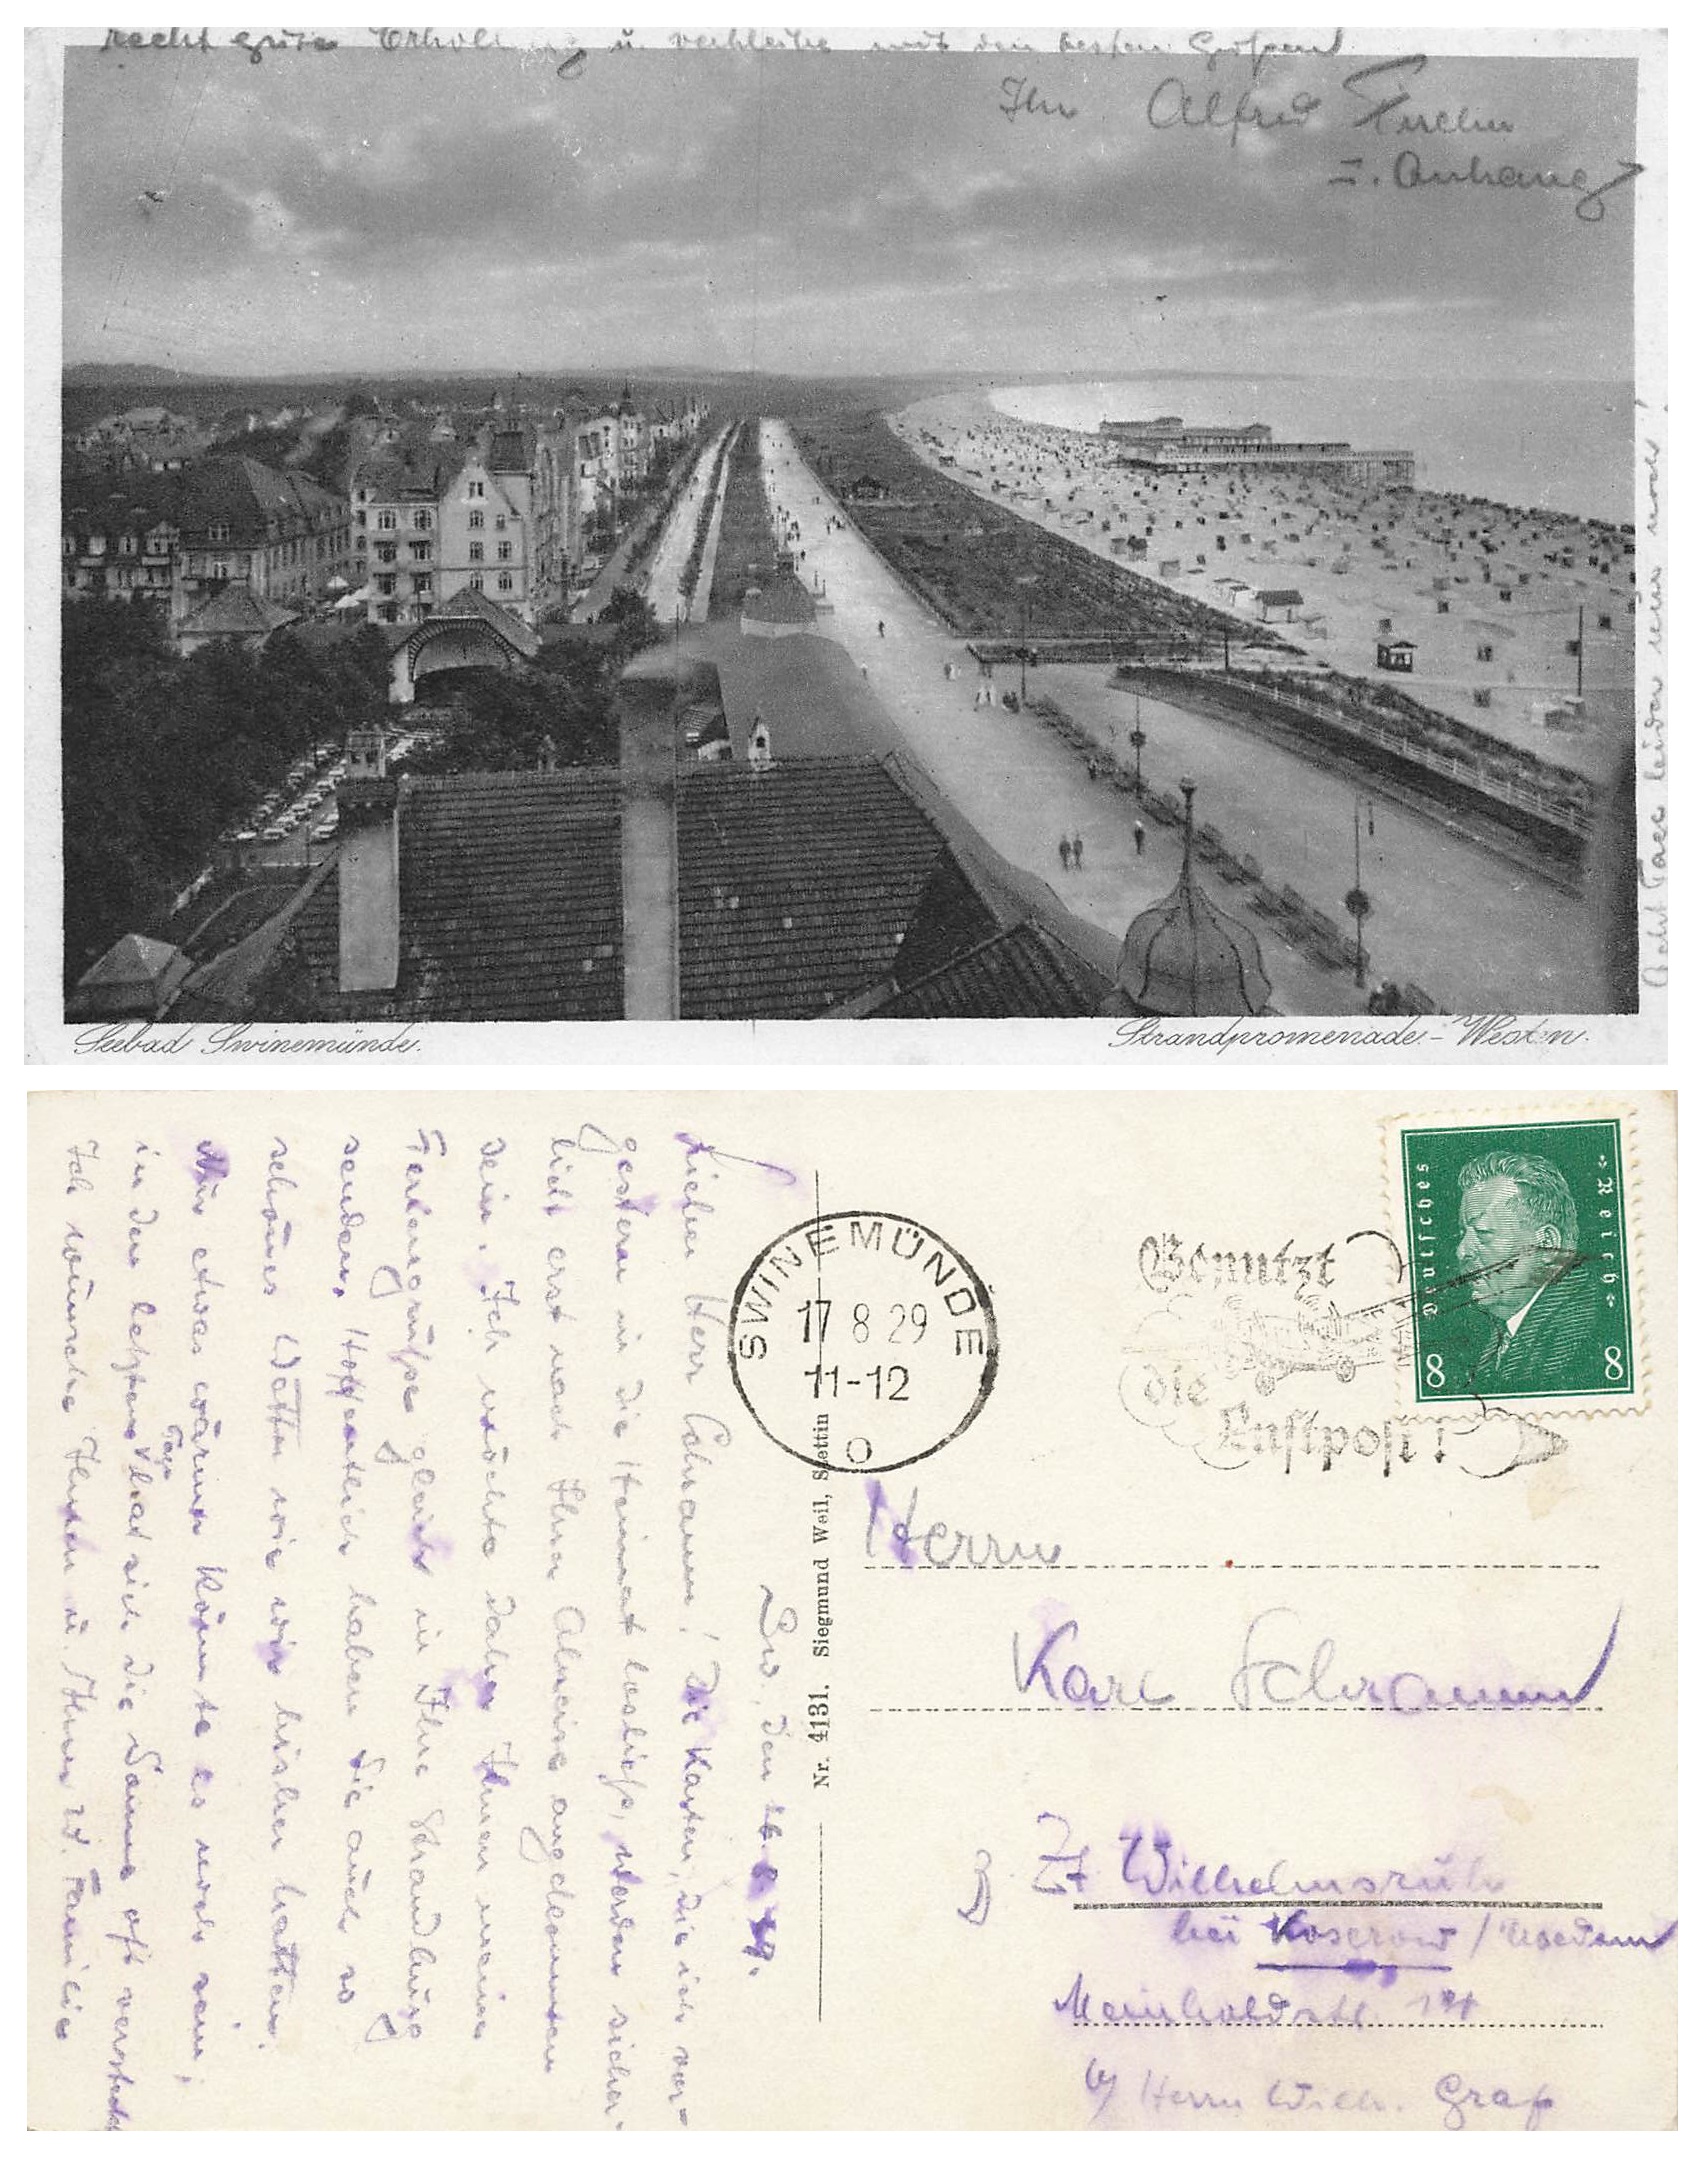 recht gute Erholung u. verbleibe mit den besten Grüßen
Ihr Alfred
u. Anhang
Acht Tage leider nur noch!
Seebad Swinemünde.
Strandpromenade-Westen.
Deutsches Reich
8 8
SWINEMÜNDE
17 8 29
11-12
o
Benutzt
die
Luftpost!
Nr. 4131. Siegmund Weil, Stettin
Sw., den 16. 8. 29.
Lieber Herr Schramm! Die Karten, die ich vor-
gestern in die Heimat losließ, werden sicher-
lich erst nach Ihrer Abreise angekommen
sein. Ich möchte daher Ihnen meine
Feriengrüße gleich in Ihre Strandburg
senden. Hoffentlich haben Sie auch so
schönes Wetter wie wir bisher hatten.
Nur etwas wärmer könnte es noch sein;
in den letzten Tagen hat sich die Sonne oft versteckt
Ich wünsche Ihnen u. Ihrer w. Familie
Herrn
Karl Schramm
z. Zt Wilhelmshöh
bei Koserow / Usedom
Meinholdstr.
b/ Herrn Wilh. Graf